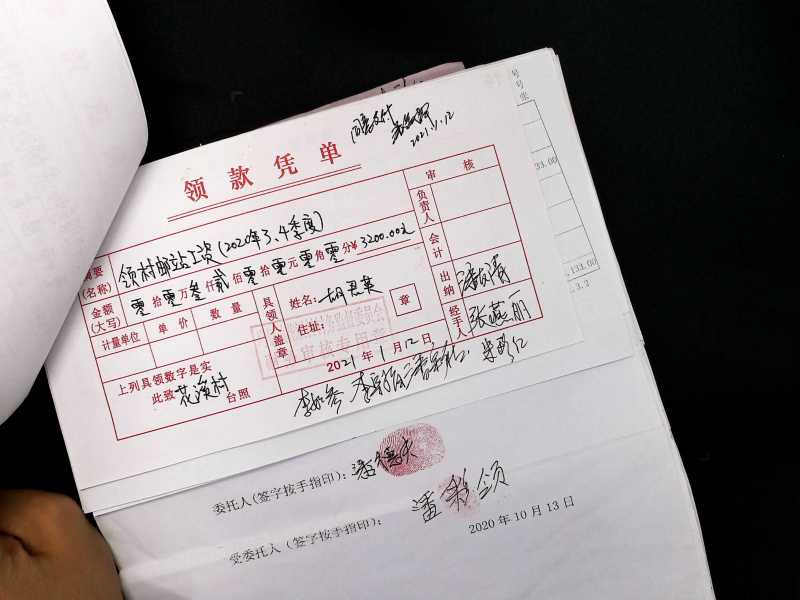 号
号
张
同意支付
2021.1.12
领款凭单
133.00
摘要(名称) 领村邮站工资(2020年3、4季度)
审核
负责人
金额(大写) 零拾零万叁仟贰佰零拾零元零角零分¥3200.00元
会计
计量单位 单价 数量
具领人盖章
姓名:胡思英
住址:
章
出纳
133.00
3.2
经手人 张燕丽
审核专用章
2021年1月12日
上列具领数字是实
此致 花溪村 台照
委托人(签字按手指印):潘德夫
受委托人(签字按手指印): 潘彩颂
2020年10月13日